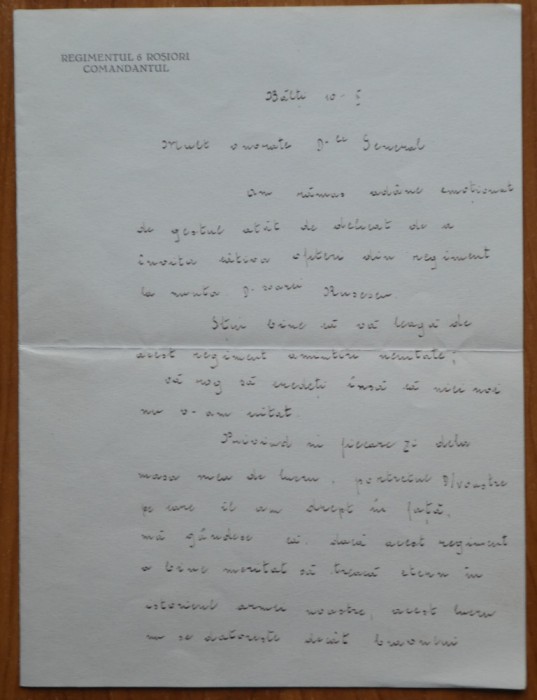 REGIMENTUL 6 ROȘIORI
COMANDANTUL
Bălți 10-I
Mult onorate D-le General
Am rămas adânc emoționat
de gestul atât de delicat de a
invita câtiva ofițeri din regiment
la nunta D-șoarei Rusescu.
Știu bine că vă leagă de
acest regiment amintiri neuitate;
vă rog să credeți însă că nici noi
nu v-am uitat.
Privind în fiecare zi dela
masa mea de lucru, portretul D/voastre
pe care îl am drept în față,
mă gândesc că dacă acest regiment
a bine meritat să treacă etern în
istoricul armei noastre, acest lucru
nu se datorește decât bravului